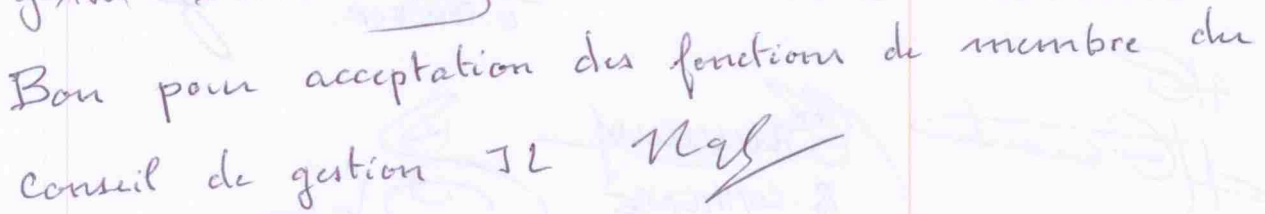 Bon pour acceptation des fonctions de membre du
conseil de gestion JL